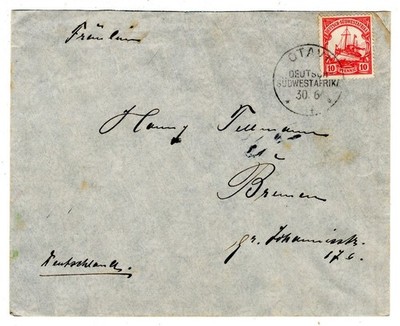 Fräulein
OTAVI
DEUTSCH
SÜDWESTAFRIKA
30. 6
DEUTSCH-SÜDWESTAFRIKA
10 PFENNIG 10
Hanny Tellmann
in
Bremen
gr. Johannisstr.
Deutschland.